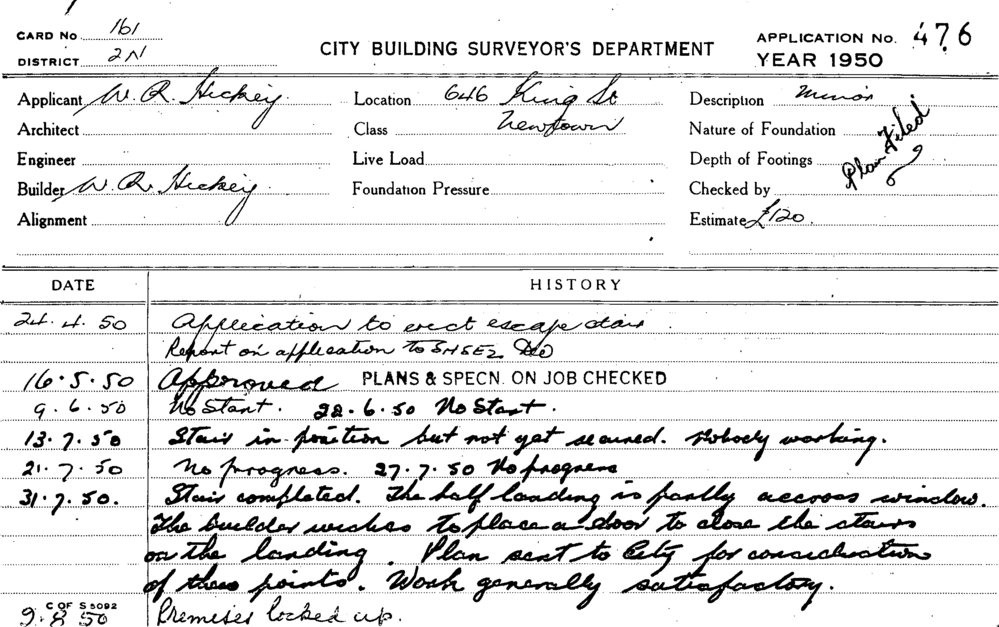 CARD No 161
DISTRICT 2N
CITY BUILDING SURVEYOR'S DEPARTMENT
APPLICATION No. 476
YEAR 1950
Applicant W. R. Hickey. Location 646 King St Description Minor
Architect Class Newtown Nature of Foundation
Engineer Live Load Depth of Footings
Plan Filed
Builder W. R. Hickey. Foundation Pressure Checked by
Alignment Estimate £120.
DATE HISTORY
24.4.50 Application to erect escape stair
Report on application to
16.5.50 Approved PLANS & SPECN. ON JOB CHECKED
9.6.50 No Start. 22.6.50 No Start.
13.7.50 Stair in position but not yet secured. Nobody working.
21.7.50 No progress. 27.7.50 No progress
31.7.50. Stair completed. The half landing is partly accross window.
The builder wishes to place a door to close the stairs
on the landing. Plan sent to City for consideration
of these points. Work generally satisfactory.
C OF S 5092
9.8.50 Premises locked up.